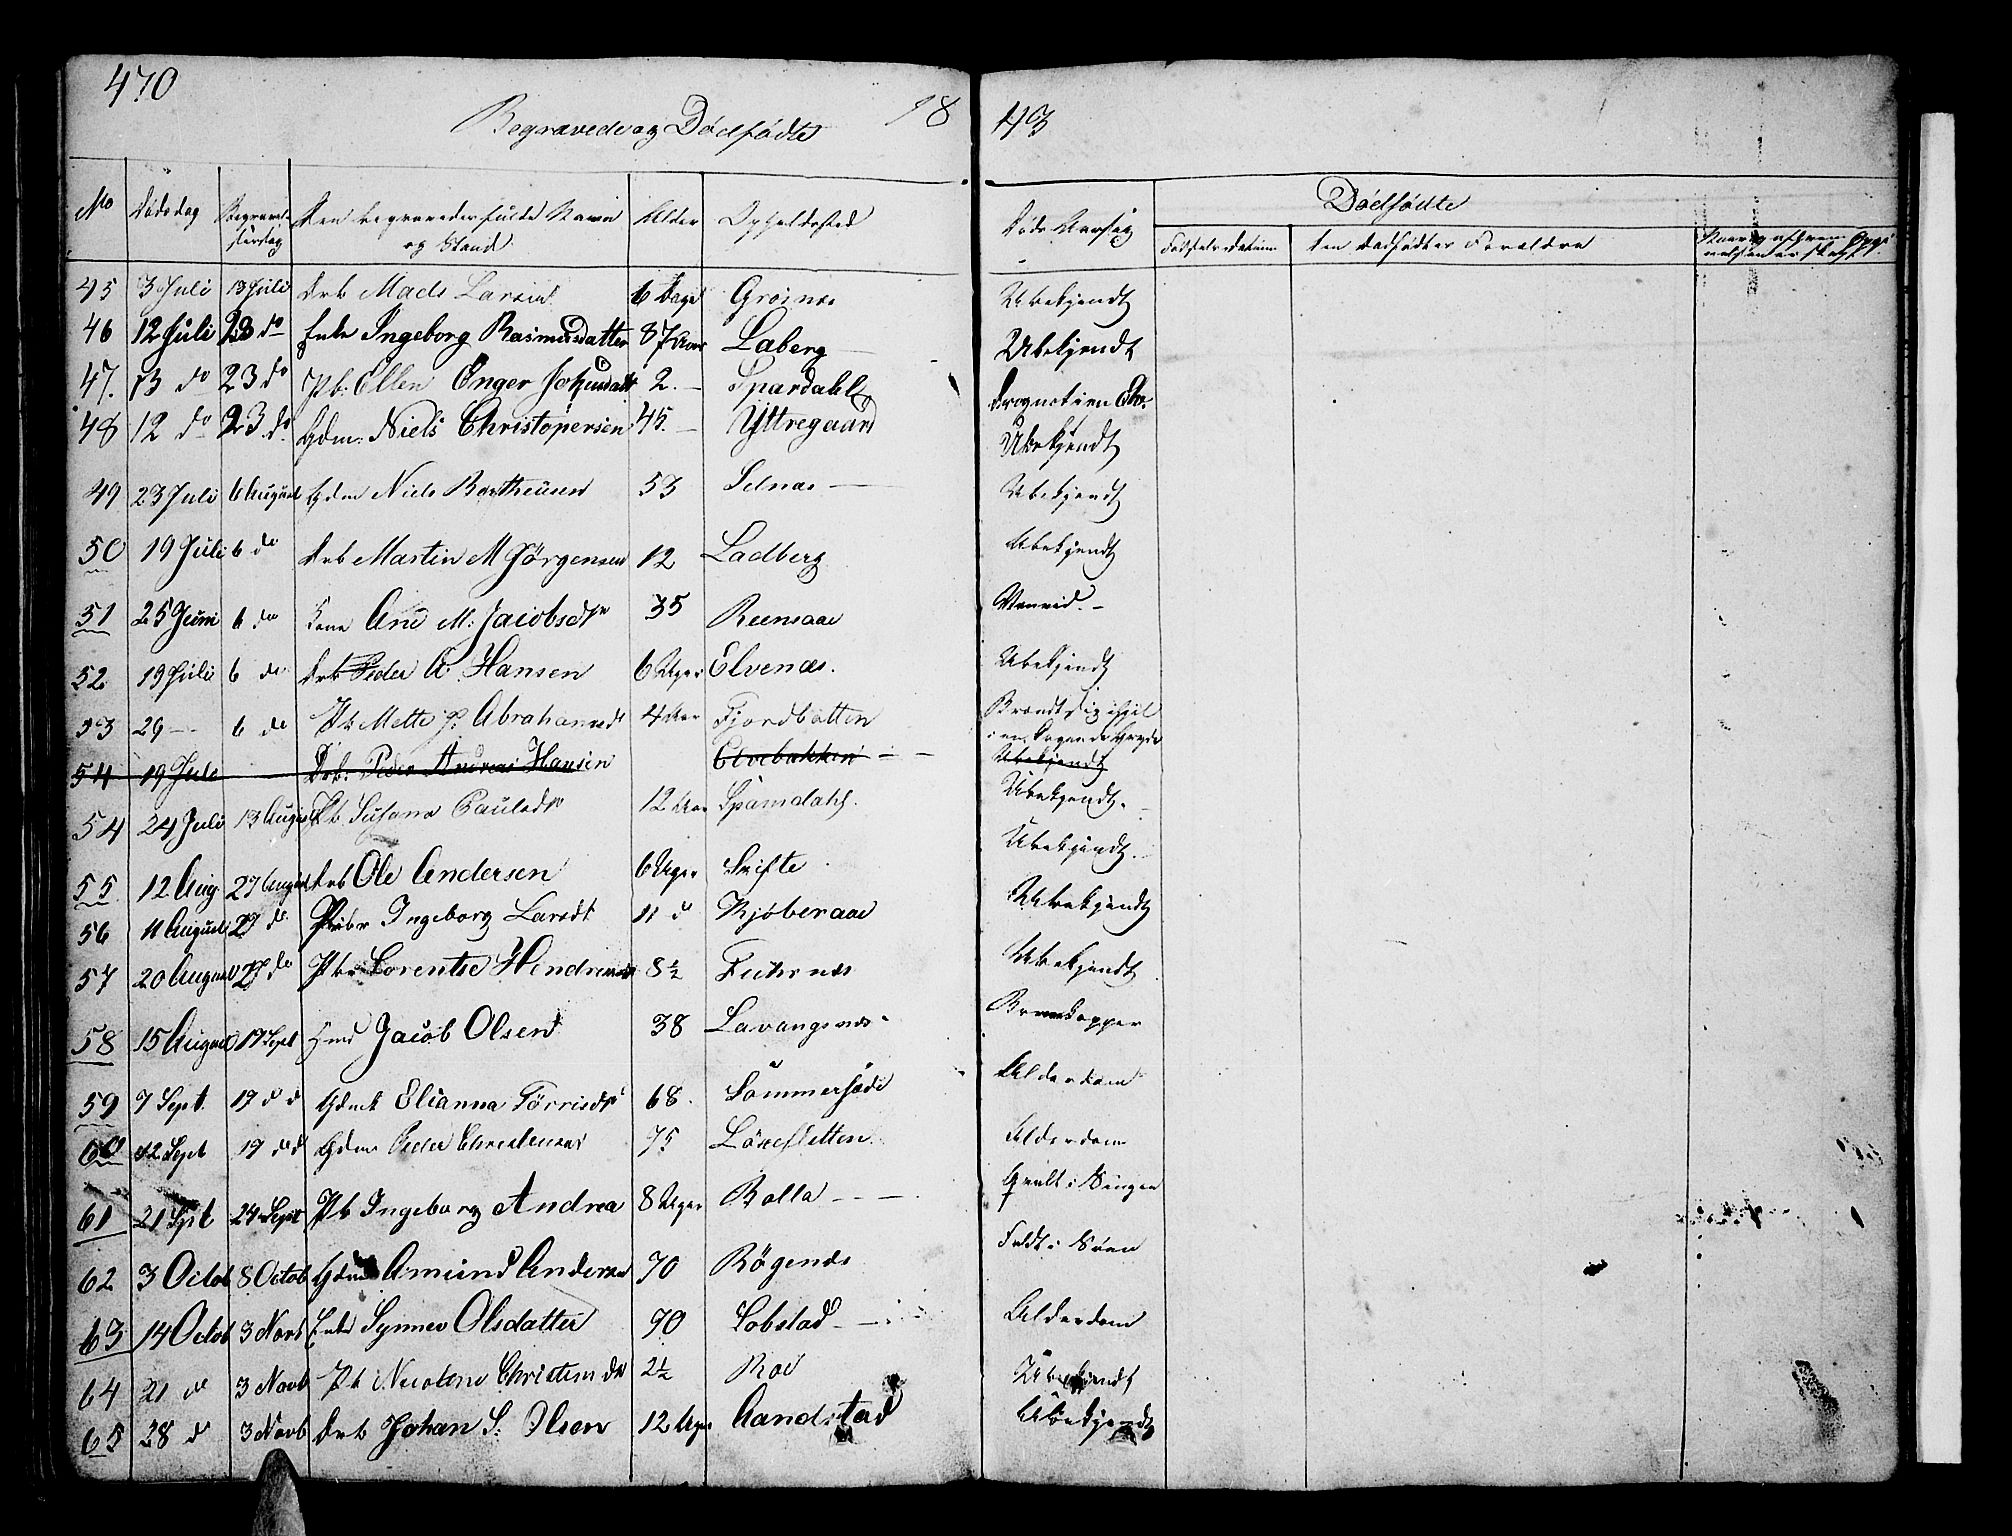 470
Begravede og Dødfødte
1843
No Dødsdag Begravelsesdag Den begravedes fulde Navn og Stand Alder Opholdssted Døds Aarsag
Dødfødte
Fødsels Datum den dødfødtes Forældre
45 3 Juli 13 Juli Drb Mads Larsen 6 Dage Groines Ubekjendt
46 12 Juli 23 do Enke Ingeborg Rasmusdatter 87 Aar Laberg Ubekjendt
47. 13 do 23 do Pb. Ellen Inger 2. – Spandahl
48 12 do 23 do Gdm. Niels Christopersen 45. – Yttregaard Ubekjendt
49 23 Juli 6 August Gdm Niels Bertheusen 53 Selnæs – Ubekjendt
50 19 Juli 6 do Drb Martin M Jørgensen 12 Ladberg Ubekjendt
51 25 Juni 6 do Kone Ane M. Jacobsdtr 35 Reensaae Vanvid. –
52 19 Juli 6 do Drb Peder A. Hansen 6 Uger Elvenæs. Ubekjendt
53 29 – 6 do Pb Mette P. Abrahamsdt 4 Aar Fjordbotten Brændt sig ihjel
i en kogende Gryde
54 19 Juli Drb. Peder Andreas Hansen Elvebakken – – Ubekjendt
54 24 Juli 13 August Pb Susana Paulsdtr 12 Aar Spandahl. Ubekjendt.
55 12 Aug. 27 August Drb Ole Andersen 6 Uger Skifte Ubekjendt.
56 11 August 27 do Pibr Ingeborg Larsdt 11 d Kjøberaae Ubekjendt
57 20 August 27 do Pbr Lorentse 8½ Fuhrnæs Ubekjendt
58 15 August 17 Sept Jacob Olsen 38 Lavangsnæs Børnekopper
59 7 Sept. 17 d d Elianna Tørrisdtr 68. Sommersæde Alderdom
60 12 Sept 17 d d Gdm Peder Christensen 75 Løsesletten Alderdom
61 21 Spt 24 Sept Pb Ingeborg Andrea 8 Uger Rolla – – – Qvalt i Sengen
62 3 Octob 8 Octob Gdm Amund Andersen 70 Røgenæs Faldt i Søen
63 14 Octob 3 Novb Enke Synnev Olsdatter 90 Lobstad – – Alderdom
64 21 do 3 Novb Pb Nicoline Christensdt 2½ Roe Ubekjendt
65 28 d 3 Novb Drb Johan S. Olsen 12 Uger Aandstad Ubekjendt